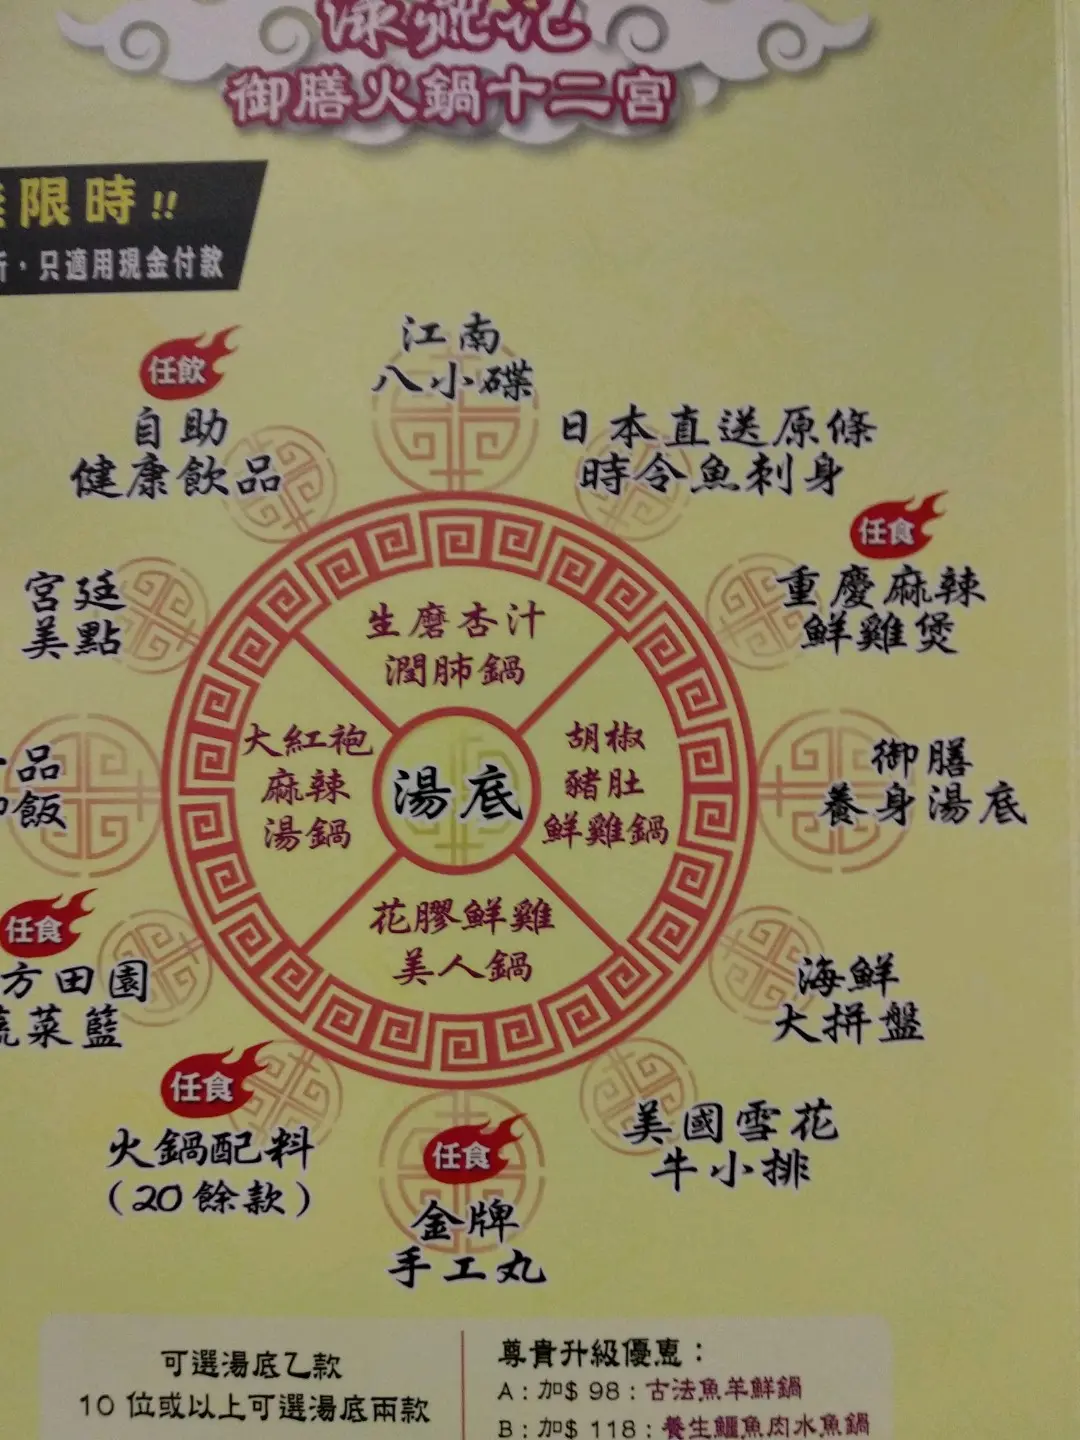 御膳火鍋十二宮
限時!!
，只適用現金付款
江南
八小碟
任飲
自助
健康飲品
日本直送原條
時令魚刺身
任食
重慶麻辣
鮮雞煲
宮廷
美點
生磨杏汁
潤肺鍋
大紅袍
麻辣
湯鍋
湯底
胡椒
豬肚
鮮雞鍋
花膠鮮雞
美人鍋
御膳
養身湯底
品
飯
任食
方田園
菜籃
海鮮
大拼盤
任食
火鍋配料
(20餘款)
任食
金牌
手工丸
美國雪花
牛小排
可選湯底乙款
10 位或以上可選湯底兩款
尊貴升級優惠：
A：加$ 98：古法魚羊鮮鍋
B：加$ 118：養生鱷魚肉水魚鍋